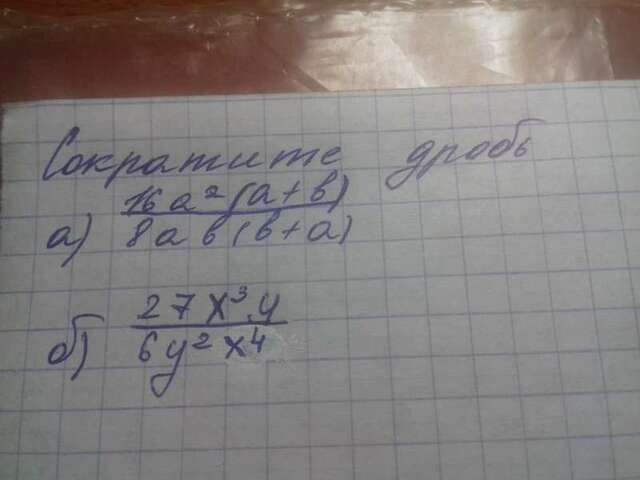 Сократите дробь
а) 16a²(a+b)
8ab(b+a)
б) 27x³y
6y²x⁴